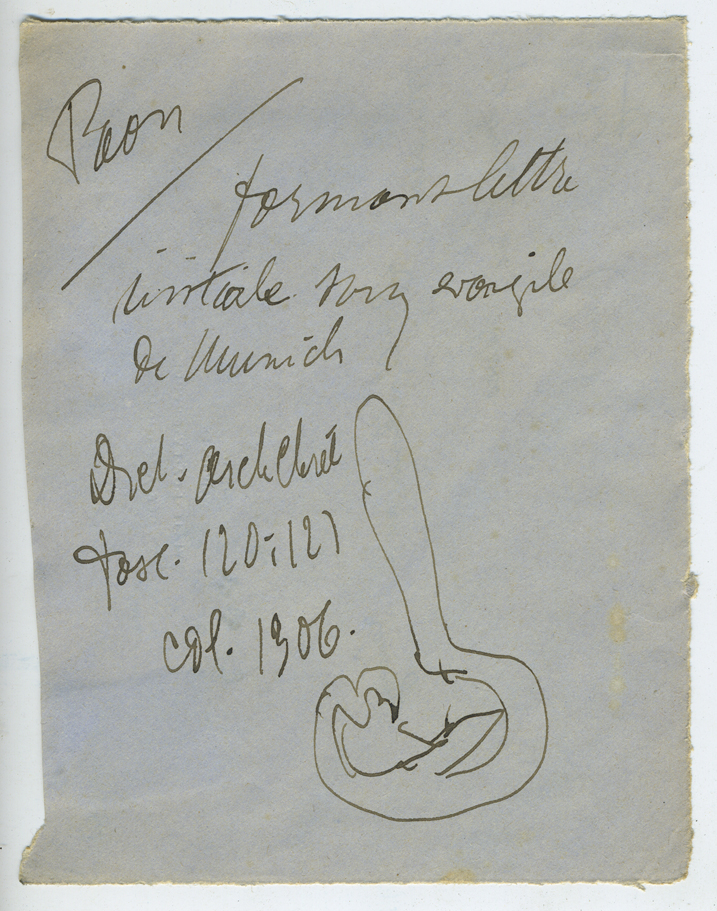 Paon
formant lettre
initiale evangile
De Munich
Dict. arch Chrét
fasc. 120-121
col. 1306.